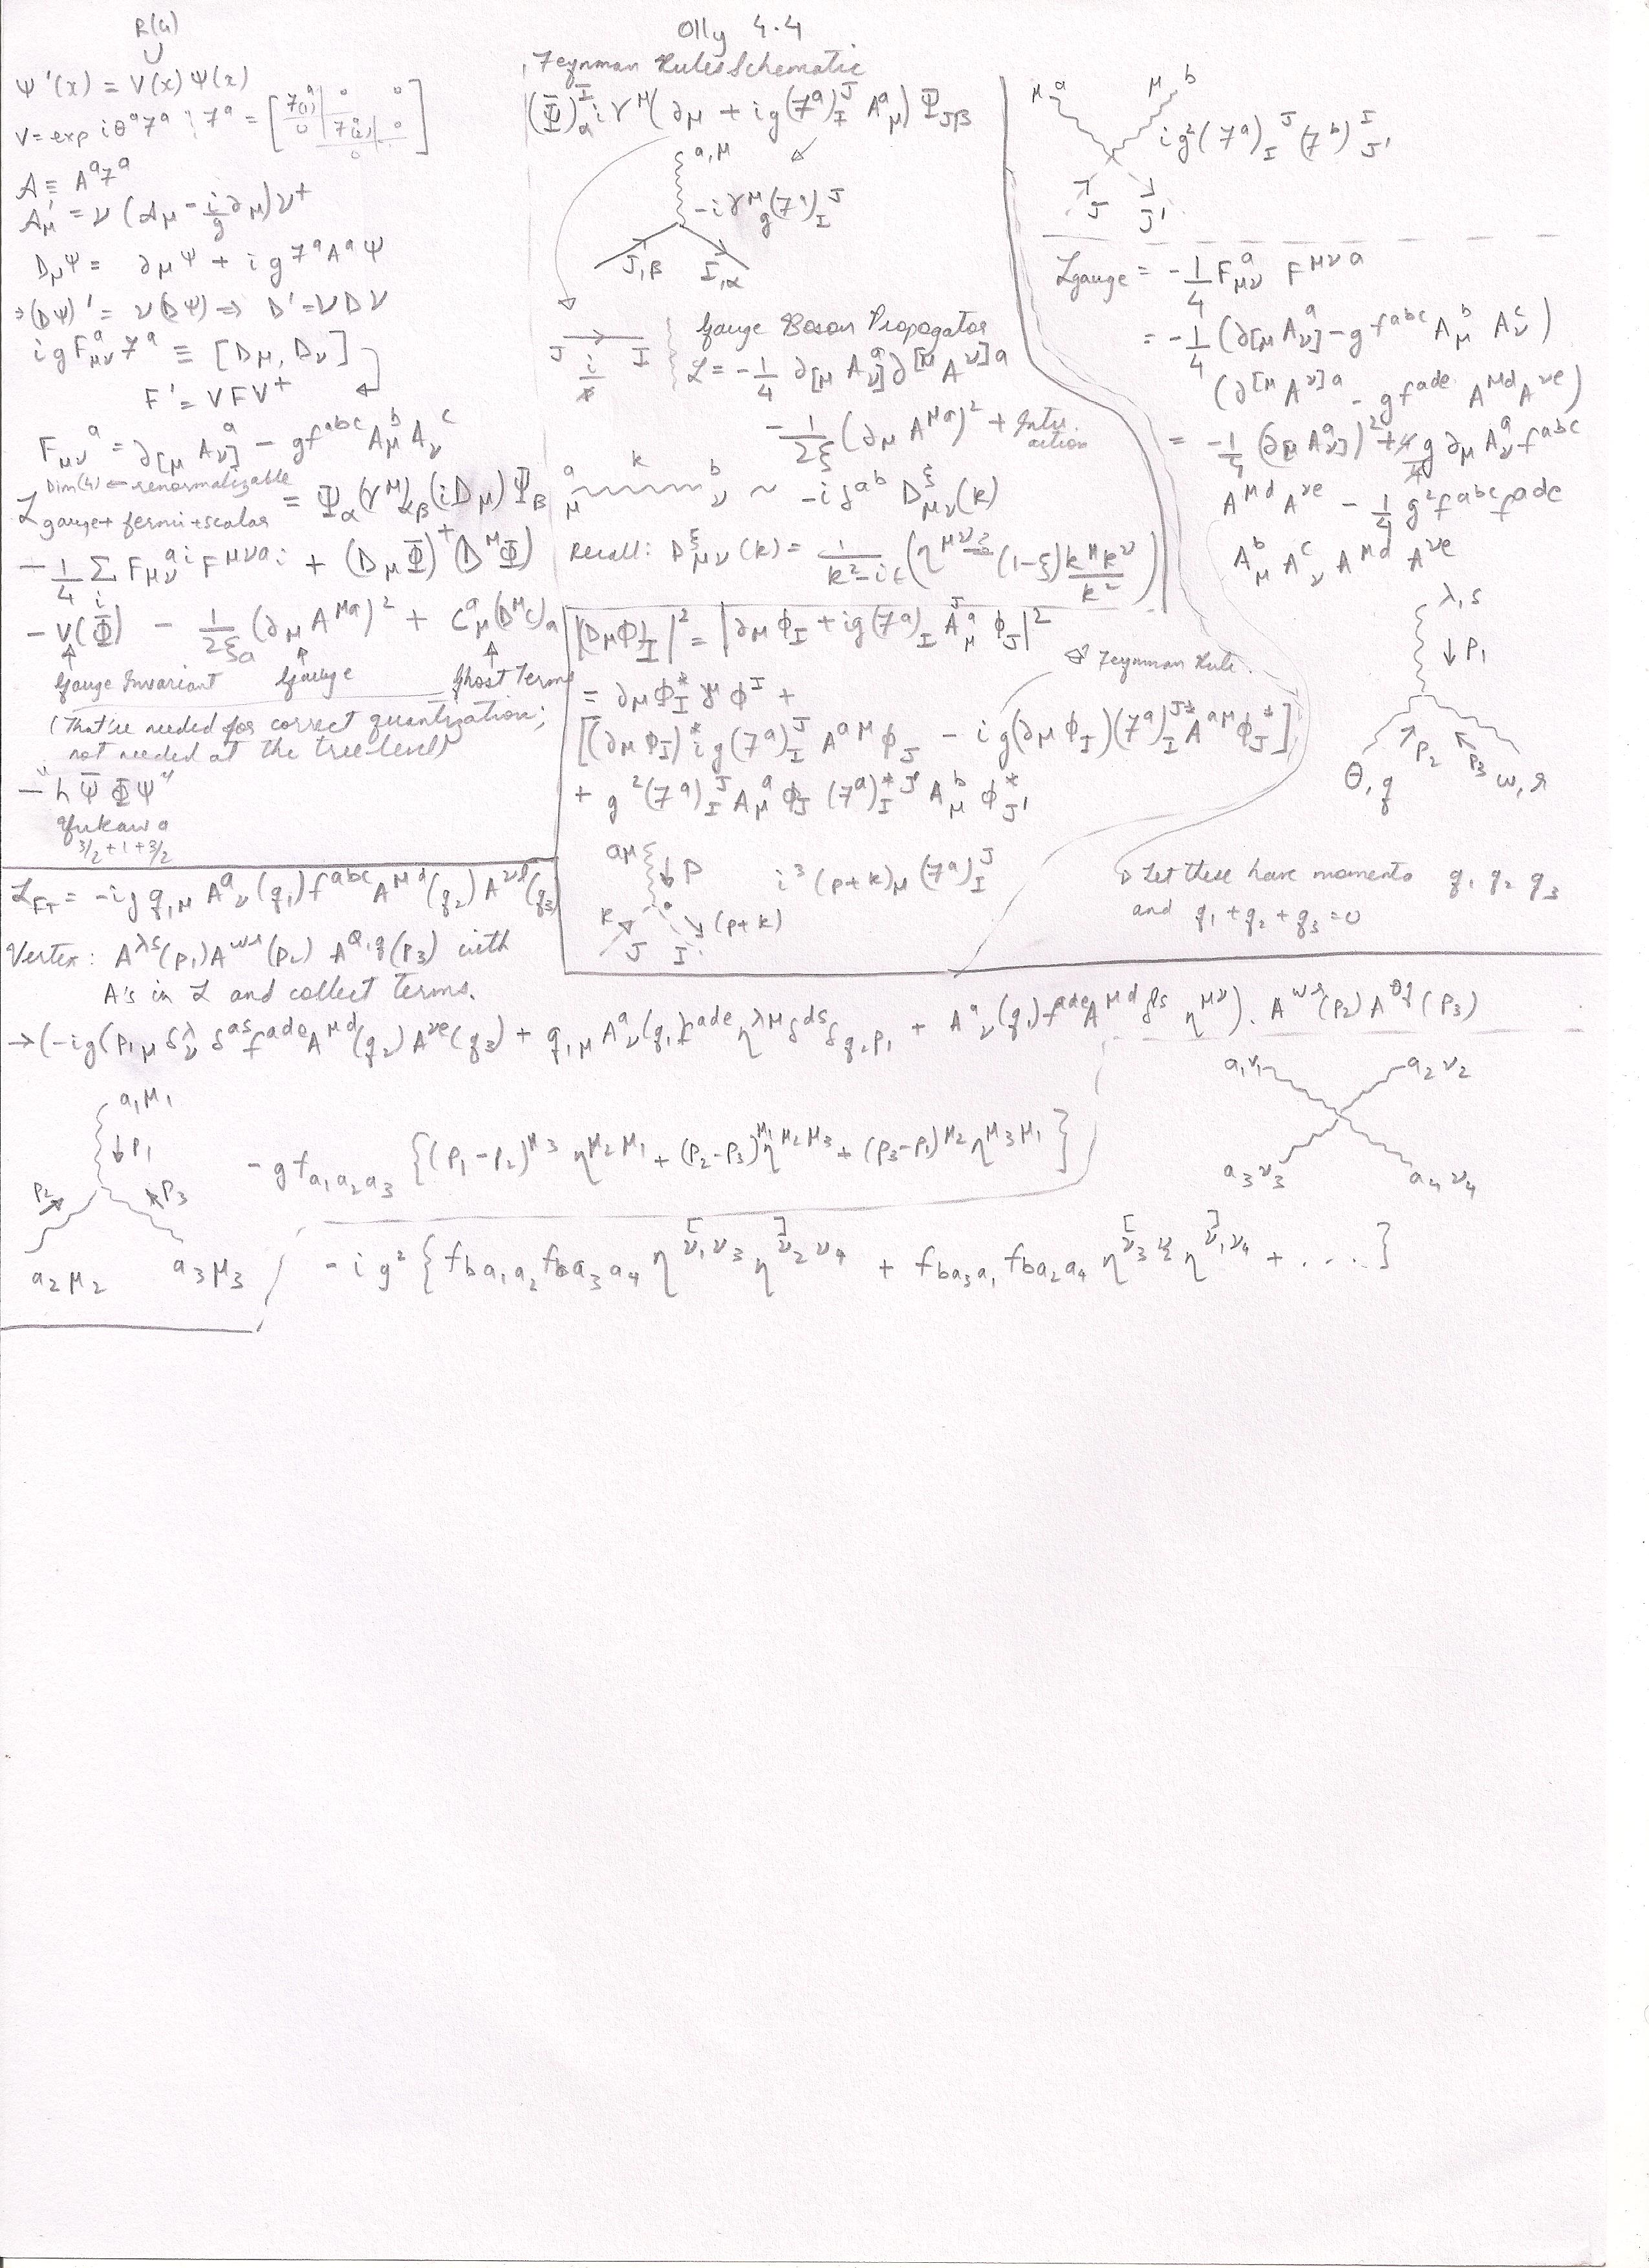 Olly 4.4
R(G)
∪
Ψ'(x) = V(x) Ψ(x)
V = exp iθ^a T^a ; T^a = [T^a_(1) | 0 | 0 ; 0 | T^a_(2) | 0 ; 0]
A ≡ A^a T^a
A'_μ = V (A_μ - i/g ∂_μ) V^+
D_μ Ψ = ∂_μ Ψ + i g T^a A^a Ψ
⇒ (DΨ)' = V(DΨ) ⇒ D' = V D V
i g F^a_μν T^a ≡ [D_μ, D_ν]
F' = V F V^+
F^a_μν = ∂_[μ A^a_ν] - g f^abc A^b_μ A^c_ν
Dim(4) ← renormalizable
L_gauge + fermi + scalar = Ψ̄_α (γ^μ)_αβ (i D_μ) Ψ_β
- 1/4 Σ_i F^ai_μν F^μνai + (D_μ Φ)^+ (D^μ Φ)
- V(Φ) - 1/2ξ_a (∂_μ A^μa)^2 + C^a_μ (D^μ c)_a
↑ Gauge Invariant ↑ Gauge ↑ Ghost Terms
(That're needed for correct quantization;
not needed at the tree level)
- "h Ψ̄ Φ Ψ"
Yukawa
3/2 + 1 + 3/2
Feynman Rules Schematic
(Ψ̄)^I_α i γ^μ (∂_μ + i g (T^a)_I^J A^a_μ) Ψ_Jβ
a, μ
-i γ^μ g (T^a)_I^J
J, β I, α
J → I
i/p̸
Gauge Boson Propagator
L = -1/4 ∂_[μ A^a_ν] ∂^[μ A^ν]a
- 1/2ξ (∂_μ A^μa)^2 + Interaction
a μ k b ν ~ -i δ^ab D^ξ_μν (k)
Recall: D^ξ_μν (k) = 1/(k^2 - iε) (η^μν - (1-ξ) k^μ k^ν / k^2)
|(D_μ Φ)_I|^2 = |∂_μ φ_I + i g (T^a)_I^J A^a_μ φ_J|^2
Feynman Rule
= ∂_μ φ*_I ∂^μ φ^I +
[(∂_μ φ_I)* i g (T^a)_I^J A^aμ φ_J - i g (∂_μ φ_I)(T^a)_I^J* A^aμ φ*_J]
+ g^2 (T^a)_I^J A^a_μ φ_J (T^a)*_I^J' A^b_μ φ*_J'
a μ ↓ p
i^3 (p+k)_μ (T^a)_I^J
k J I (p+k)
μ a μ b
i g^2 (T^a)_I^J (T^b)^I_J'
J J'
L_gauge = -1/4 F^a_μν F^μνa
= -1/4 (∂_[μ A^a_ν] - g f^abc A^b_μ A^c_ν)
(∂^[μ A^ν]a - g f^ade A^μd A^νe)
= -1/4 (∂_[μ A^a_ν])^2 + 4/4 g ∂_μ A^a_ν f^abc
A^μd A^νe - 1/4 g^2 f^abc f^ade
A^b_μ A^c_ν A^μd A^νe
λ, s
↓ p_1
p_2 p_3
θ, q ω, r
Let these have momenta q_1 q_2 q_3
and q_1 + q_2 + q_3 = 0
L_FT = -i g q_1μ A^a_ν (q_1) f^abc A^μd (q_2) A^νe (q_3)
Vertex: A^λs (p_1) A^ωr (p_2) A^θ,q (p_3) with
A's in L and collect terms.
→ (-i g (p_1μ δ^λ_ν δ^as f^ade A^μd (q_2) A^νe (q_3) + q_1μ A^a_ν (q_1) f^ade η^λμ δ^ds δ_q2p1 + A^a_ν (q_1) f^ade A^μd δ^es η^μν). A^ωr (p_2) A^θq (p_3)
a_1 μ_1
↓ p_1
p_2 p_3
a_2 μ_2 a_3 μ_3
- g f_a1a2a3 {(p_1 - p_2)^μ3 η^μ2μ1 + (p_2 - p_3)^μ1 η^μ2μ3 + (p_3 - p_1)^μ2 η^μ3μ1}
a_1 ν_1 a_2 ν_2
a_3 ν_3 a_4 ν_4
- i g^2 {f_ba1a2 f_ba3a4 η^[ν1ν3 η^ν2]ν4 + f_ba3a1 f_ba2a4 η^[ν3ν2 η^ν1]ν4 + . . . }